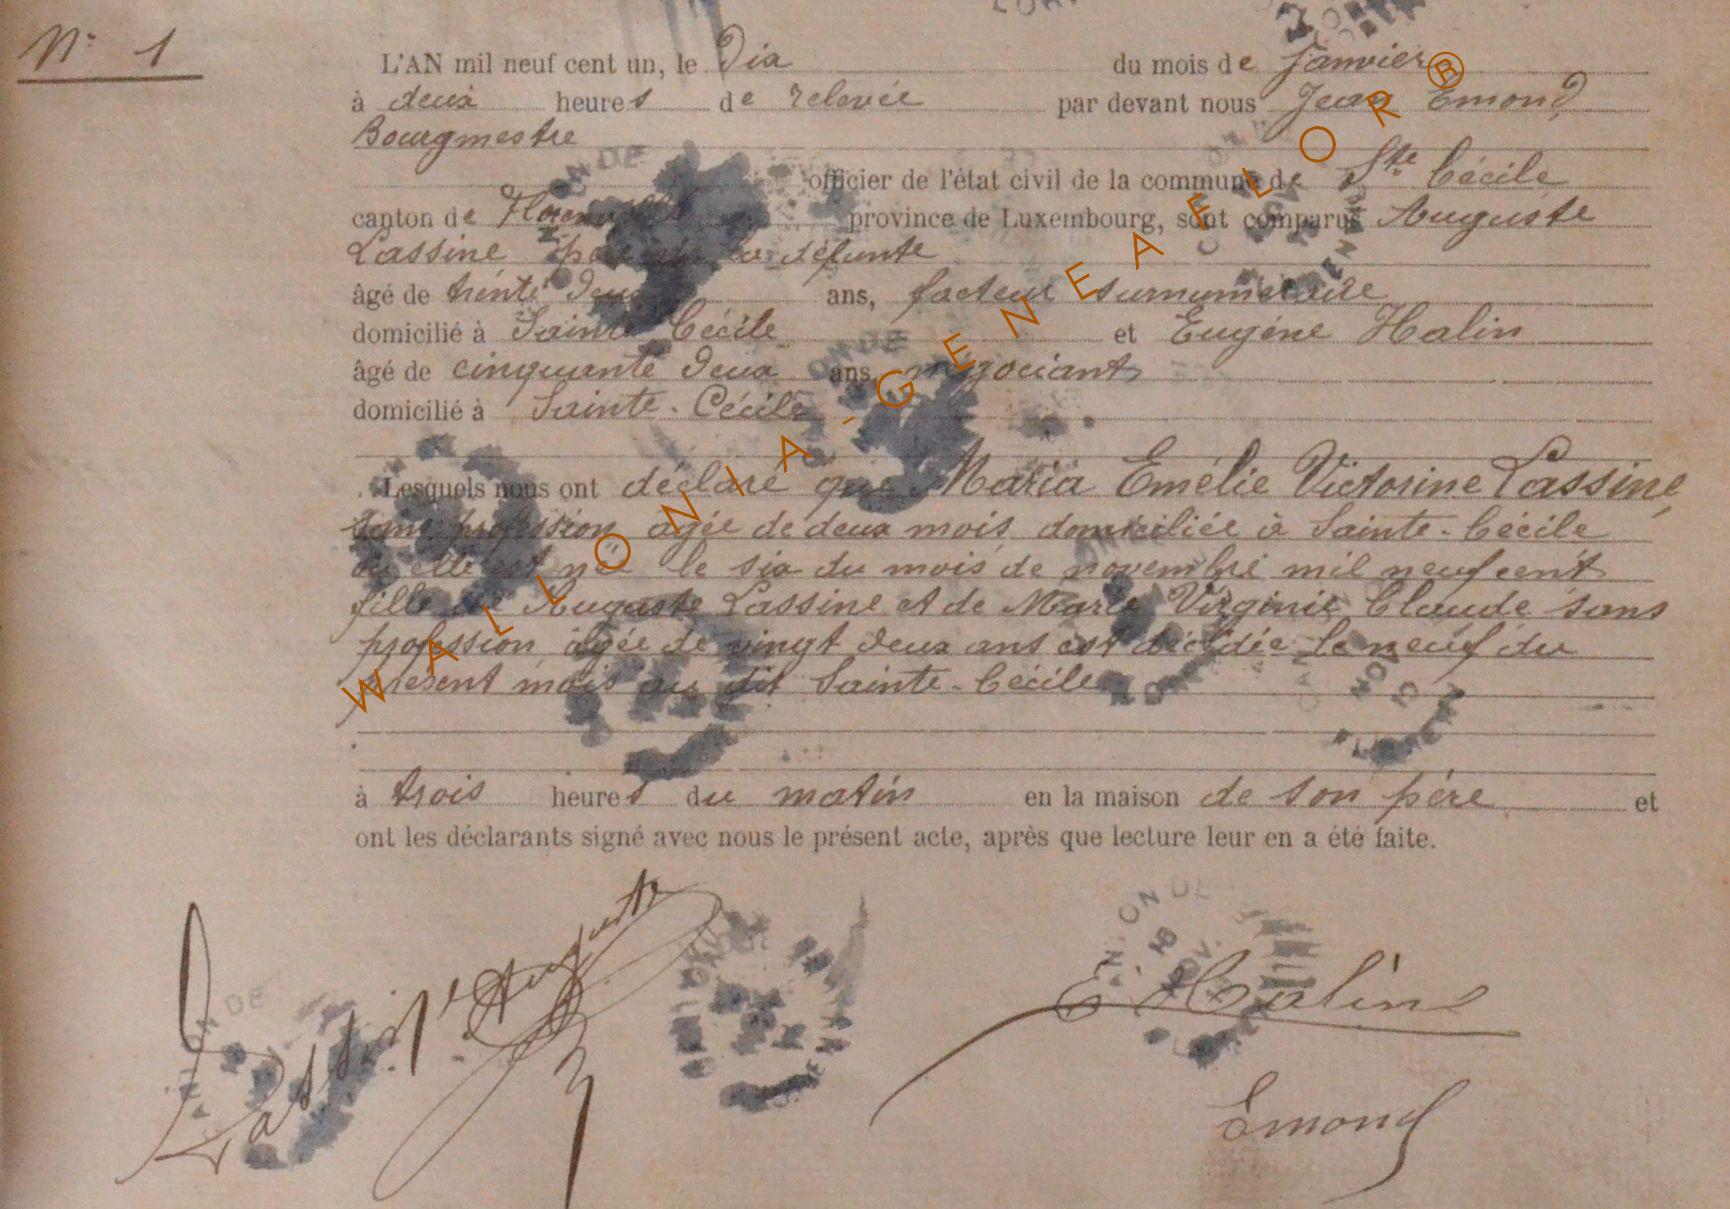 N° 1
L'AN mil neuf cent un, le Dix du mois de Janvier
à deux heures de relevée par devant nous Jean Emond,
Bourgmestre
officier de l'état civil de la commune de Ste Cécile
canton de Florenville province de Luxembourg, sont comparus Auguste
Lassine père de la défunte
âgé de trente deux ans, facteur surnuméraire
domicilié à Sainte Cécile et Eugène Halin
âgé de cinquante deux ans, négociant
domicilié à Sainte-Cécile
Lesquels nous ont déclaré que Maria Emélie Victorine Lassine,
sans profession agée de deux mois domiciliée à Sainte-Cécile
où elle est née le six du mois de novembre mil neuf cent
fille de Auguste Lassine et de Marie Virginie Claude sans
profession agée de vingt deux ans est décédée le neuf du
présent mois au dit Sainte-Cécile
à trois heures du matin en la maison de son père et
ont les déclarants signé avec nous le présent acte, après que lecture leur en a été faite.
Lassine Auguste
E Halin
Emond
WALLONIA-GENEAFLOR®